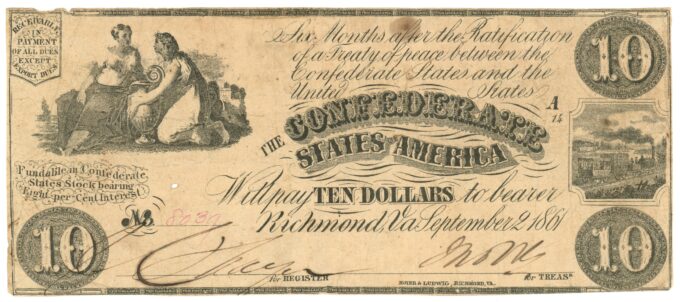 RECEIVABLE
IN
PAYMENT
OF ALL DUES
EXCEPT
EXPORT DUES
Six Months after the Ratification
of a Treaty of peace between the
Confederate States and the
United States
10
A
14
THE CONFEDERATE
STATES OF AMERICA
Fundable in Confederate
States Stock bearing
Eight per Cent Interest
Will pay TEN DOLLARS to bearer
No.
Richmond, Va September 2 1861
10
10
for REGISTER
HOYER & LUDWIG, RICHMOND, VA.
for TREASR